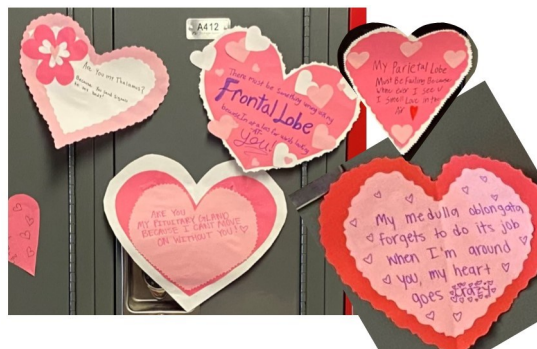 A412
Are you my Thalamus?
Because
to my heart!
There must be something wrong with my
Frontal Lobe
because I'm at a loss for words looking
at
You!
My Parietal Lobe
Must Be Failing Because
when ever I see u
I smell Love in the
Air
ARE YOU
MY PITUITARY GLAND,
BECAUSE I CAN'T MOVE
ON WITHOUT YOU!
My medulla oblongata
forgets to do its job
when I'm around
you, my heart
goes crazy